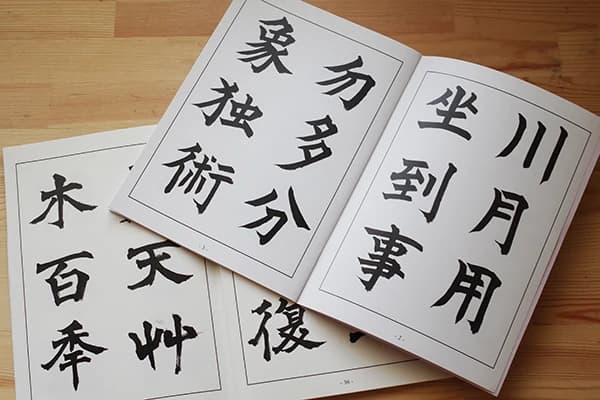 川月用
坐到事
勿多分
象独術
天艸
木百秊
復
- 1 -
- 2 -